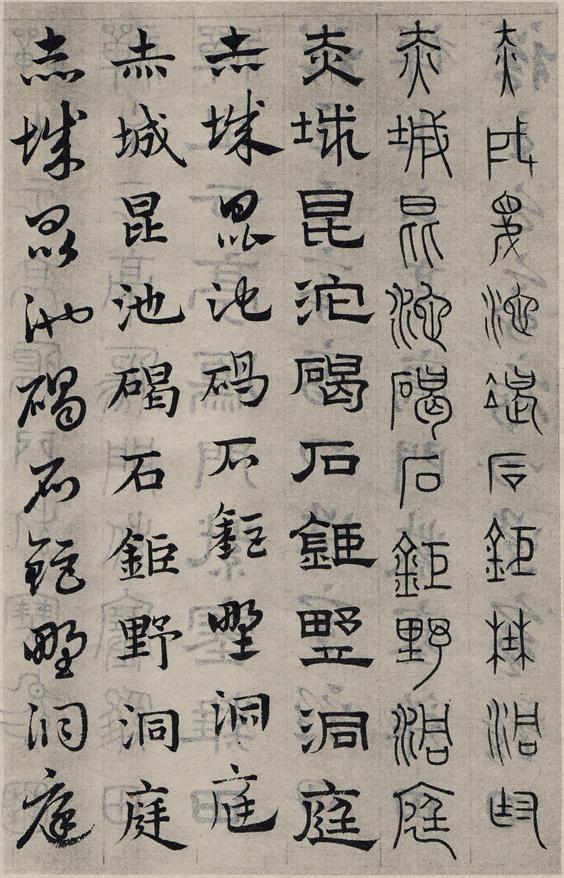 赤城昆池碣石鉅野洞庭
赤城昆池碣石鉅野洞庭
赤城昆池碣石鉅野洞庭
赤城昆池碣石鉅野洞庭
赤城昆池碣石鉅野洞庭
赤城昆池碣石鉅野洞庭